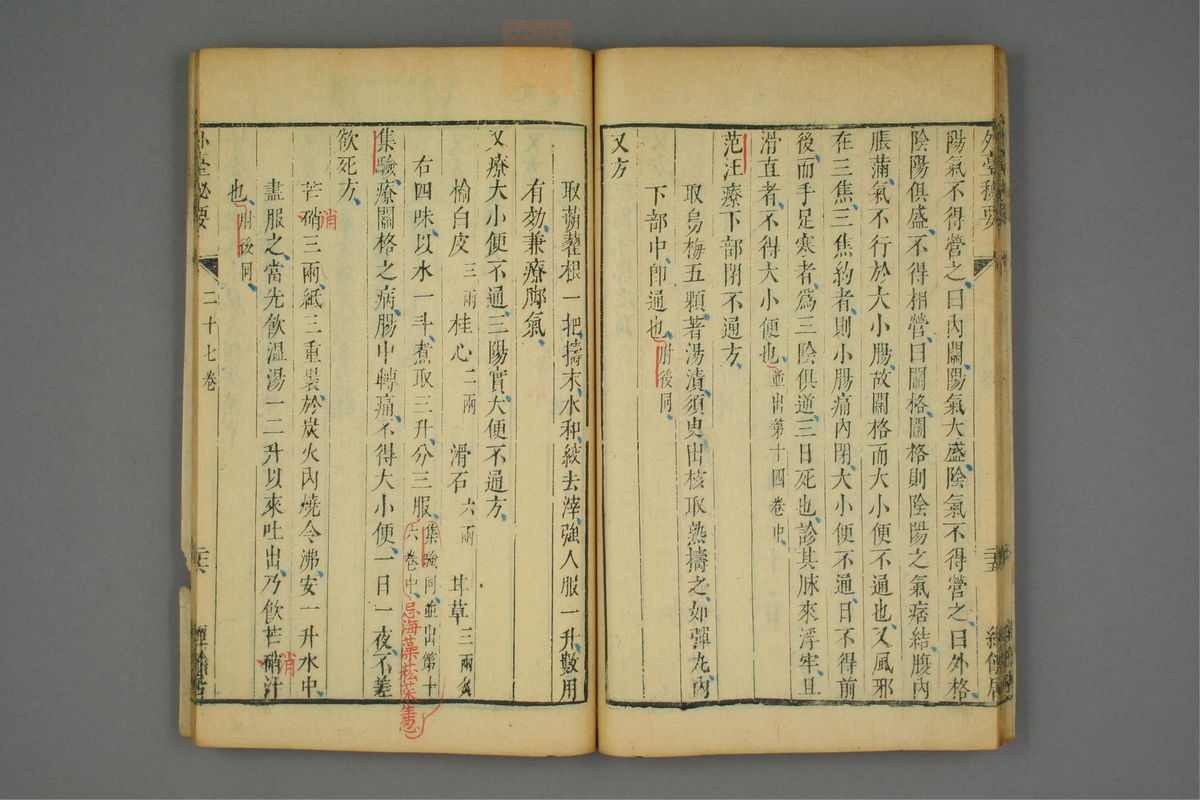 外臺秘要
二十五
經餘居
陽氣不得營之曰內關陽氣大盛陰氣不得營之曰外格
陰陽俱盛不得相營曰關格關格則陰陽之氣痞結腹內
脹滿氣不行於大小腸故關格而大小便不通也又風邪
在三焦三焦約者則小腸痛內閉大小便不通日不得前
後而手足寒者為三陰俱逆三日死也診其脉來浮牢且
滑直者不得大小便也並出第十四卷中
范汪療下部閉不通方
取烏梅五顆著湯漬須臾出核取熟擣之如彈丸內
下部中即通也肘後同
又方
取蒴藋根一把擣末水和絞去滓強人服一升數用
有効兼療脚氣
又療大小便不通三陽實大便不通方
榆白皮三兩 桂心二兩 滑石六兩 甘草三兩炙
右四味以水一斗煮取三升分三服集驗同並出第十
六卷中
忌海藻菘菜生葱
集驗療關格之病腸中轉痛不得大小便一日一夜不差
欲死方
芒硝三兩紙三重裹於炭火內燒令沸安一升水中
消
盡服之當先飲溫湯一二升以來吐出乃飲芒硝汁
消
也肘後同
外臺秘要
二十七卷
二十六